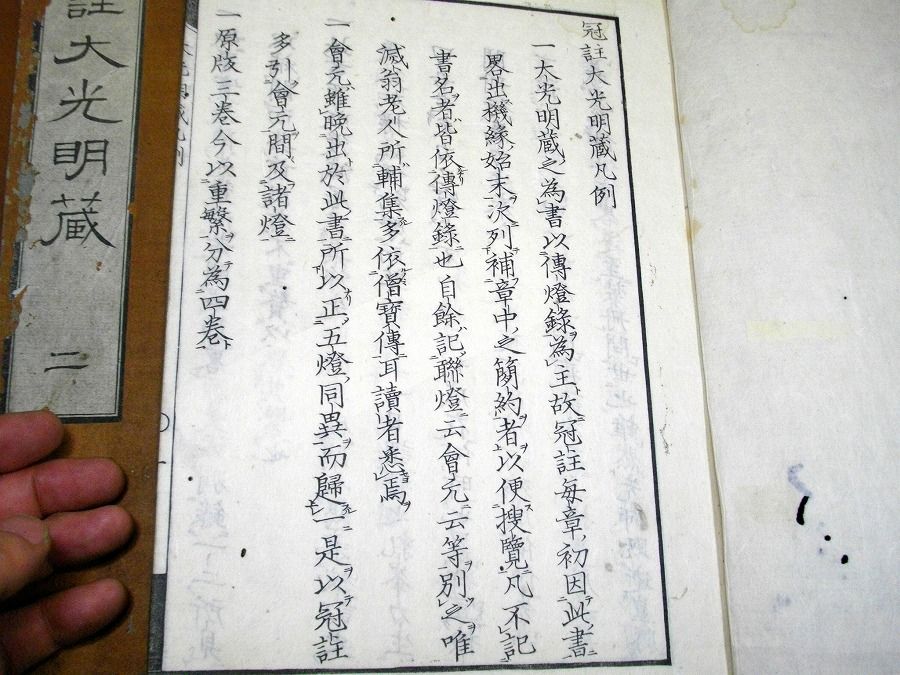 冠註大光明蔵凡例
一大光明蔵之為書以傳燈錄為主故冠註每章初因此書
畧出機緣始末次列補章中之簡約者以便搜覽凡不記
書名者皆依傳燈錄也自餘記聯燈云會元云等別之唯
滅翁老人所輔集多依僧寶傳耳讀者悉焉
一會元雖晚出於此書所以正五燈同異而歸一是以冠註
多引會元間及諸燈
一原版三卷今以重繁分為四卷
註大光明蔵 二